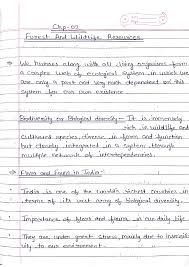 Chp-02
Forest And Wildlife Resources
→ We humans along with all living organisms form
a complex web of ecological system in which we
are only a part and very much dependent on this
system for our own existence
Biodiversity or Biological diversity - It is immensely
rich in wildlife and
cultivated species, diverse in form and function
but closely integrated in a system through
multiple network of interdependencies.
→ Flora and Fauna in India
→ India is one of the world's richest countries in
terms of its vast array of biological diversity.
→ Importance of flora and fauna in our daily life
→ They are under great stress, mainly due to insensiti-
vity to our environment